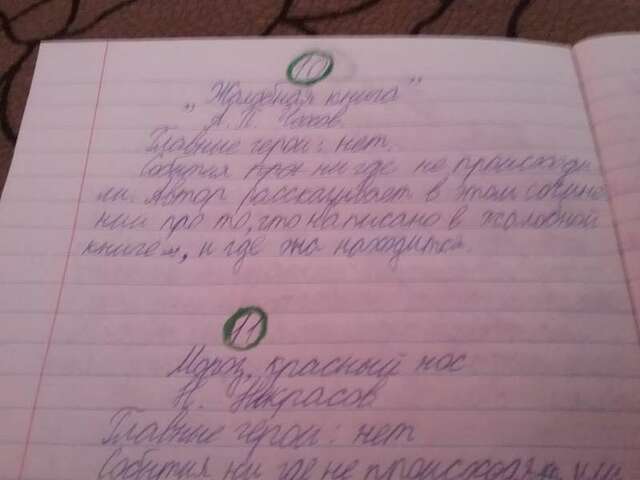 10
„Жалобная книга"
А. П. Чехов.
Главные герои: нет.
События ни где не происходи
ли. Автор рассказивает в этом сочине
нии про то, что написано в жалобной
книге, и где она находится.
11
Мороз, красный нос
Н. Некрасов
Главные герои: нет
События ни где не происходили